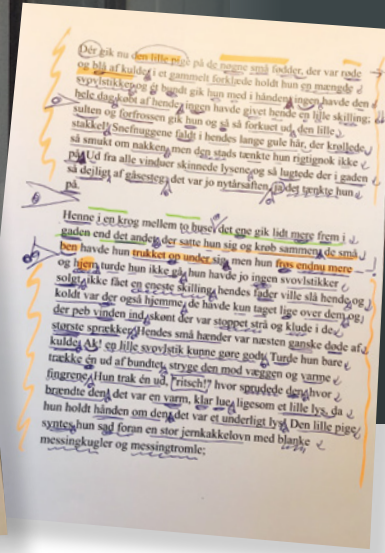 Dér gik nu den lille pige på de nøgne små fødder, der var røde
og blå af kulde; i et gammelt forklæde holdt hun en mængde
svovlstikker og ét bundt gik hun med i hånden; ingen havde den
hele dag købt af hende; ingen havde givet hende en lille skilling;
sulten og forfrossen gik hun og så så forkuet ud, den lille
stakkel! Snefnuggene faldt i hendes lange gule hår, der krøllede
så smukt om nakken, men den stads tænkte hun rigtignok ikke
på. Ud fra alle vinduer skinnede lysene og så lugtede der i gaden
så dejligt af gåsesteg; det var jo nytårsaften, ja det tænkte hun
på.
Henne i en krog mellem to huse, det ene gik lidt mere frem i
gaden end det andet, der satte hun sig og krøb sammen; de små
ben havde hun trukket op under sig, men hun frøs endnu mere
og hjem turde hun ikke gå, hun havde jo ingen svovlstikker
solgt, ikke fået en eneste skilling, hendes fader ville slå hende og
koldt var der også hjemme, de havde kun taget lige over dem og
der peb vinden ind, skønt der var stoppet strå og klude i de
største sprækker. Hendes små hænder var næsten ganske døde af
kulde. Ak! en lille svovlstik kunne gøre godt. Turde hun bare
trække én ud af bundtet, stryge den mod væggen og varme
fingrene. Hun trak én ud, "ritsch!" hvor sprudede den, hvor
brændte den! det var en varm, klar lue, ligesom et lille lys, da
hun holdt hånden om den; det var et underligt lys! Den lille pige
syntes hun sad foran en stor jernkakkelovn med blanke
messingkugler og messingtromle;